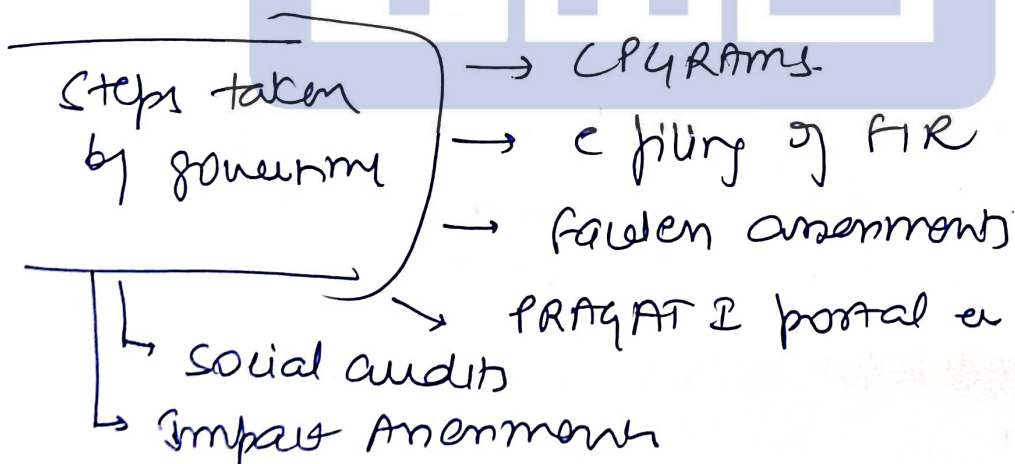 Steps taken
by government
→ CPGRAMS.
→ e filing of FIR
→ faceless assessments
→ PRAGATI portal etc
→ social audits
→ Impact Assessment